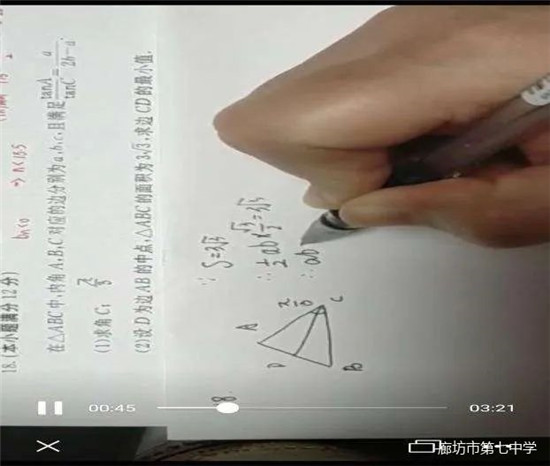 bn<0 ⇒ n<13.5
18.(本小题满分12分)
在△ABC中,内角A,B,C对应的边分别为a,b,c,且满足tanA/tanC=a/(2b-a).
(1)求角C; π/3
(2)设D为边AB的中点,△ABC的面积为3√3,求边CD的最小值.
8.
∵ S=3√3
∴ 1/2 ab×√3/2=3√3
∴ ab
A
π/3
C
D
B
00:45
03:21
廊坊市第七中学